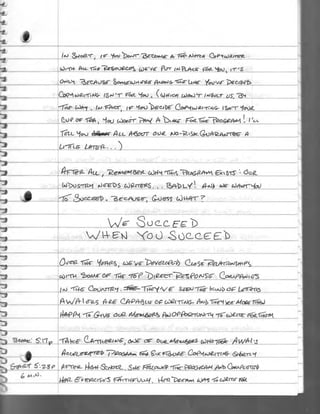 IN SHORT, IF YOU DON'T BECOME A TOP NOTCH COPYWRITER
WITH ALL THE RESOURCES WE'VE PUT IN PLACE FOR YOU, IT'S
ONLY BECAUSE SOMEWHERE ALONG THE LINE YOU'VE DECIDED
COPYWRITING ISN'T FOR YOU. (WHICH WON'T INSULT US, BY
THE WAY. IN FACT, IF YOU DECIDE COPYWRITING ISN'T YOUR
CUP OF TEA, YOU WON'T PAY A DIME FOR THE PROGRAM! I'LL
TELL YOU ALL ABOUT OUR NO-RISK GUARANTEE A
LITTLE LATER...)
AFTER ALL, REMEMBER WHY THIS PROGRAM EXISTS: OUR
INDUSTRY NEEDS WRITERS... BADLY! AND WE WANT YOU
TO SUCCEED. BECAUSE, GUESS WHAT?
WE SUCCEED
WHEN YOU SUCCEED
OVER THE YEARS, WE'VE DEVELOPED CLOSE RELATIONSHIPS
WITH SOME OF THE TOP DIRECT RESPONSE COMPANIES
IN THE COUNTRY. THEY'VE SEEN THE KIND OF LETTERS
AWAI'ERS ARE CAPABLE OF WRITING. AND THEY'RE MORE THAN
HAPPY TO GIVE OUR MEMBERS AN OPPORTUNITY TO WRITE FOR THEM
BREAK: 5:17p TAKE CATHERINE, ONE OF OUR MEMBERS WHO TOOK AWAI'S
ACCELERATED PROGRAM FOR SIX-FIGURE COPYWRITING SHORTLY
START 5:23p AFTER HIGH SCHOOL. SHE FOLLOWED THE PROGRAM AND COMPLETED
6 MIN. HER EXERCISES FAITHFULLY. HER DREAM WAS TO WRITE FOR